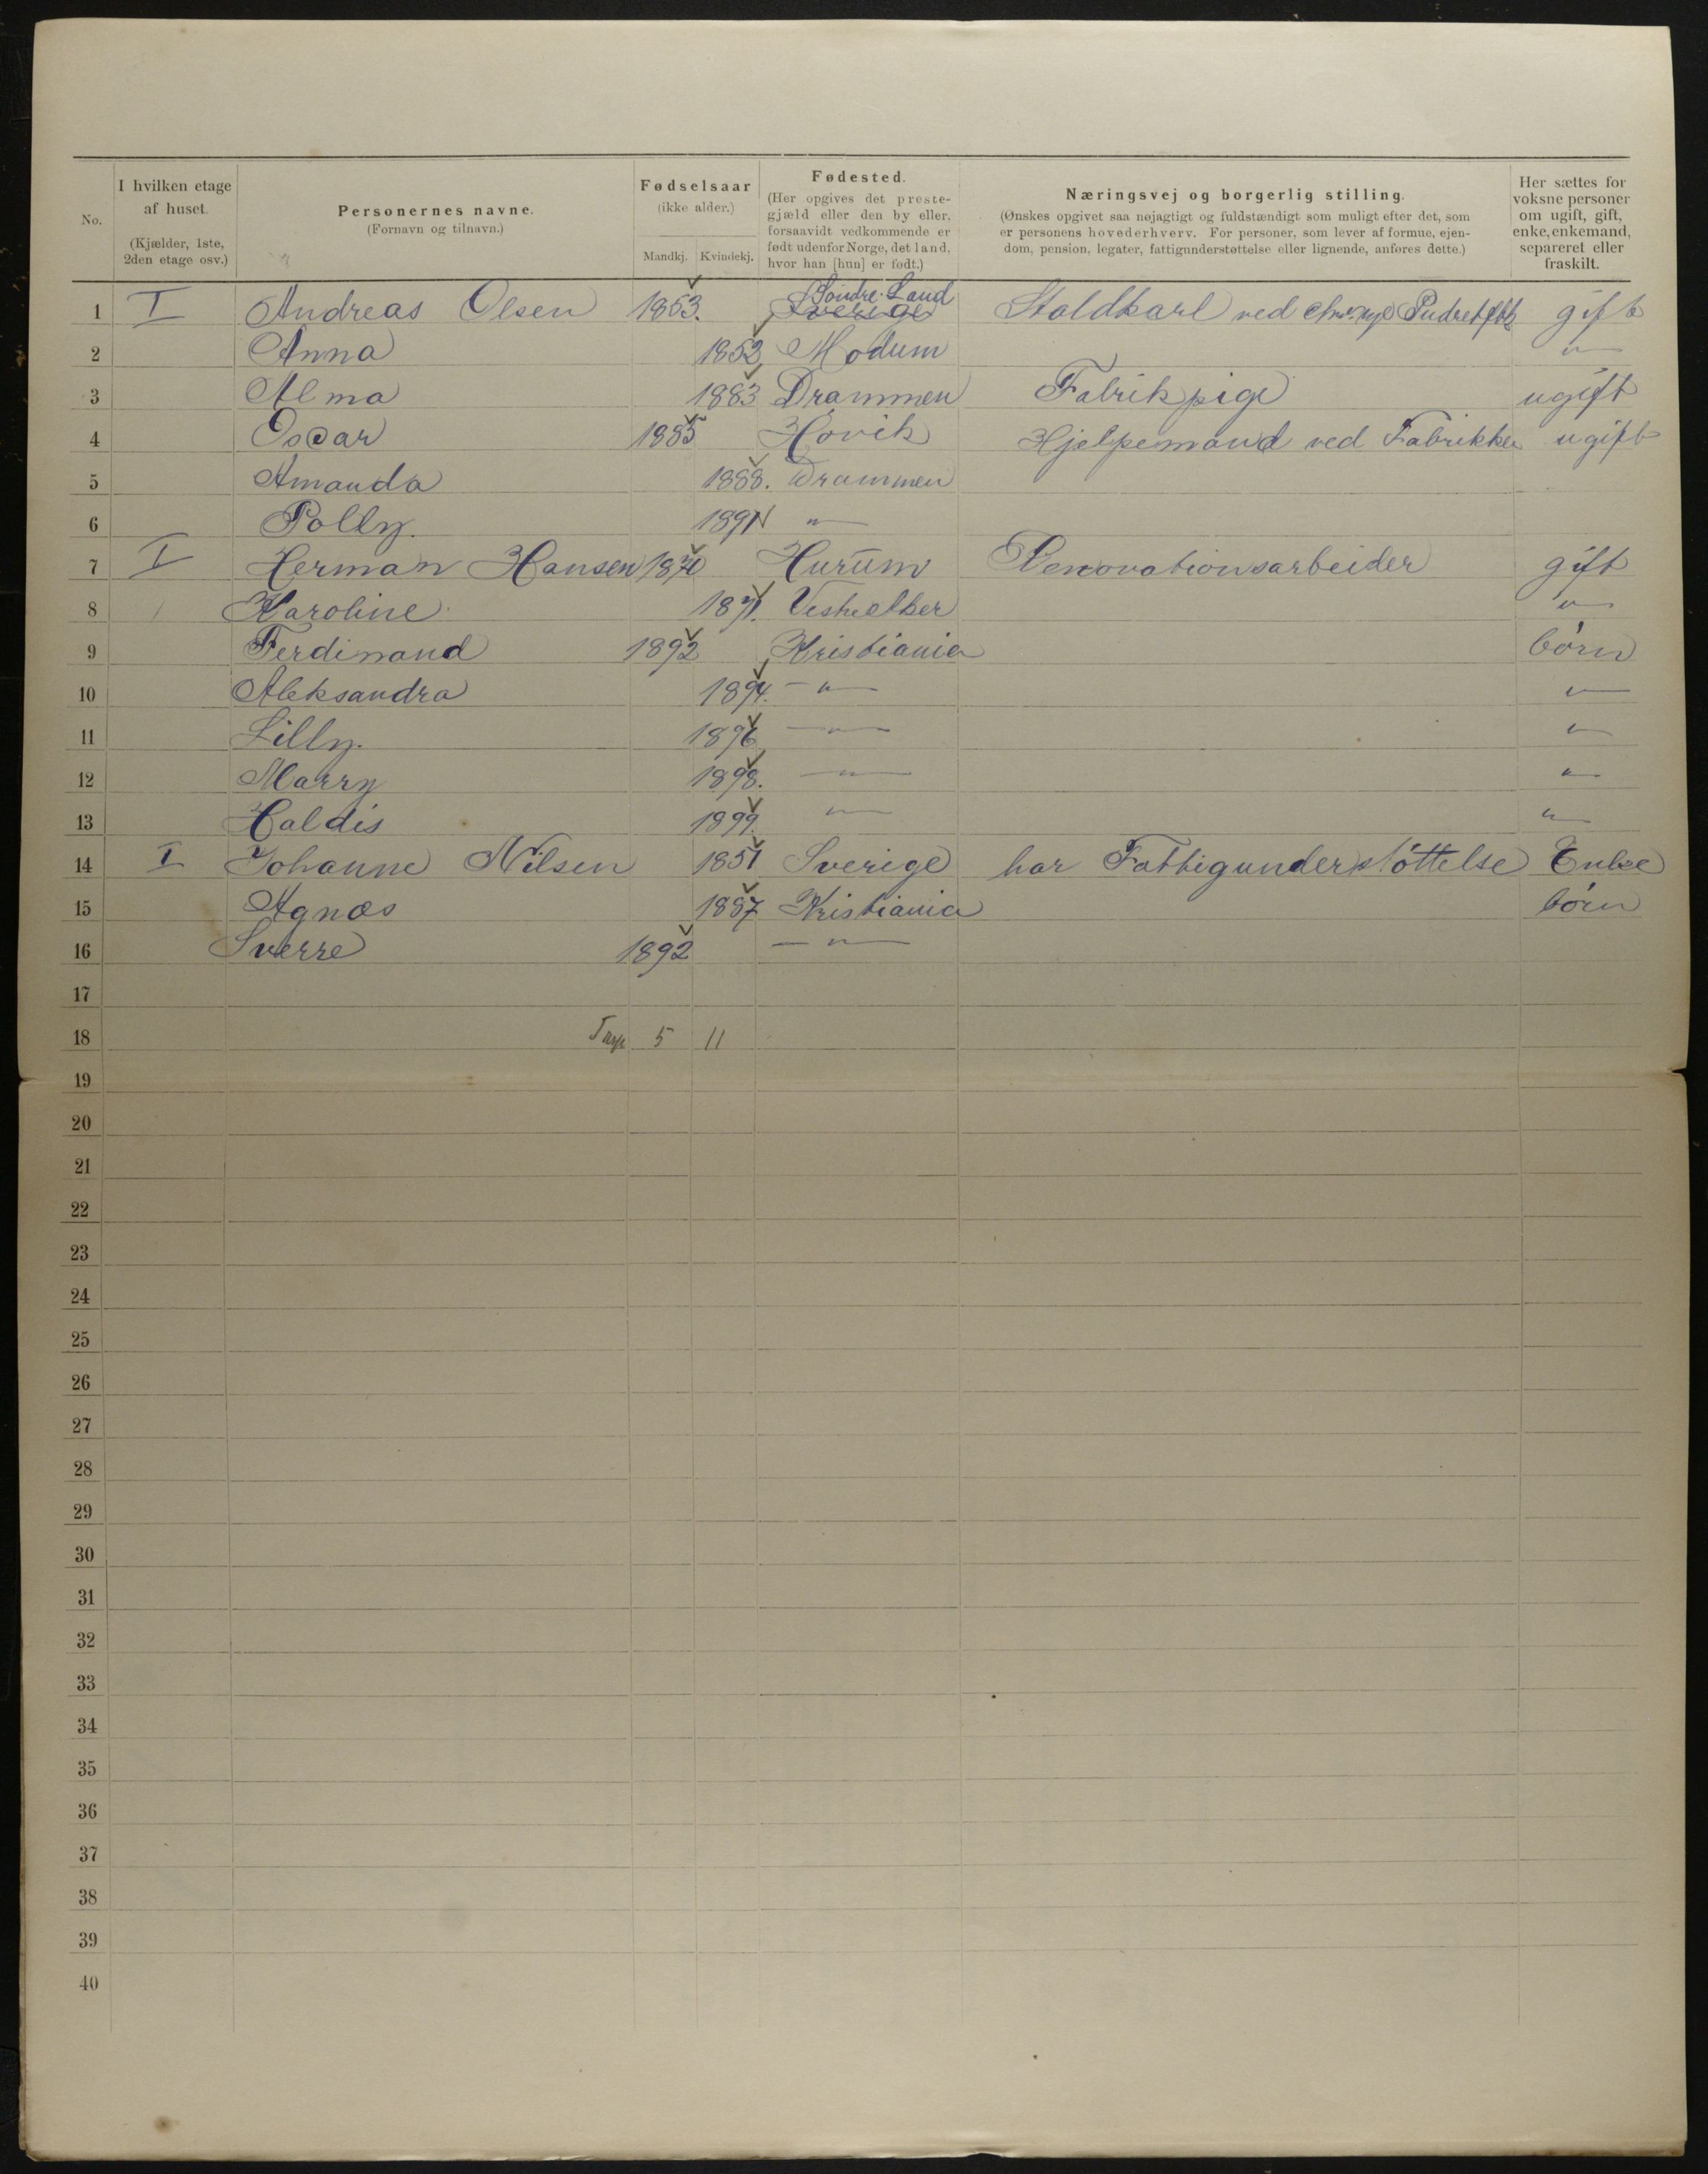 No.
I hvilken etage af huset. (Kjælder, 1ste, 2den etage osv.)
Personernes navne. (Fornavn og tilnavn.)
Fødselsaar (ikke alder.) Mandkj. Kvindekj.
Fødested. (Her opgives det prestegjæld eller den by eller, forsaavidt vedkommende er født udenfor Norge, det land, hvor han [hun] er født.)
Næringsvej og borgerlig stilling. (Ønskes opgivet saa nøjagtigt og fuldstændigt som muligt efter det, som er personens hovederhverv. For personer, som lever af formue, ejendom, pension, legater, fattigunderstøttelse eller lignende, anføres dette.)
Her sættes for voksne personer om ugift, gift, enke, enkemand, separeret eller fraskilt.
1 I Andreas Olsen 1853. Søndre Land Sverige Staldkarl ved gift
2 Anna 1852 Modum "
3 Alma 1883 Drammen Fabrikpige ugift
4 Oscar 1885 Hovik Hjelpemand ved Fabrikken ugift
5 Amanda 1888. Drammen
6 Polly. 1891 "
7 I Herman Hansen 1870 Hurum Renovationsarbeider gift
8 Karoline 1871. "
9 Ferdinand 1892 Kristiania börn
10 Aleksandra 1894. " "
11 Lilly. 1896 " "
12 Marry 1898. " "
13 Haldis 1899. " "
14 I Johanne Nilsen 1851 Sverige har Fattigunderstöttelse Enke
15 Agnes 1887 Kristiania börn
16 Sverre 1892 "
17
18 5 11
19
20
21
22
23
24
25
26
27
28
29
30
31
32
33
34
35
36
37
38
39
40